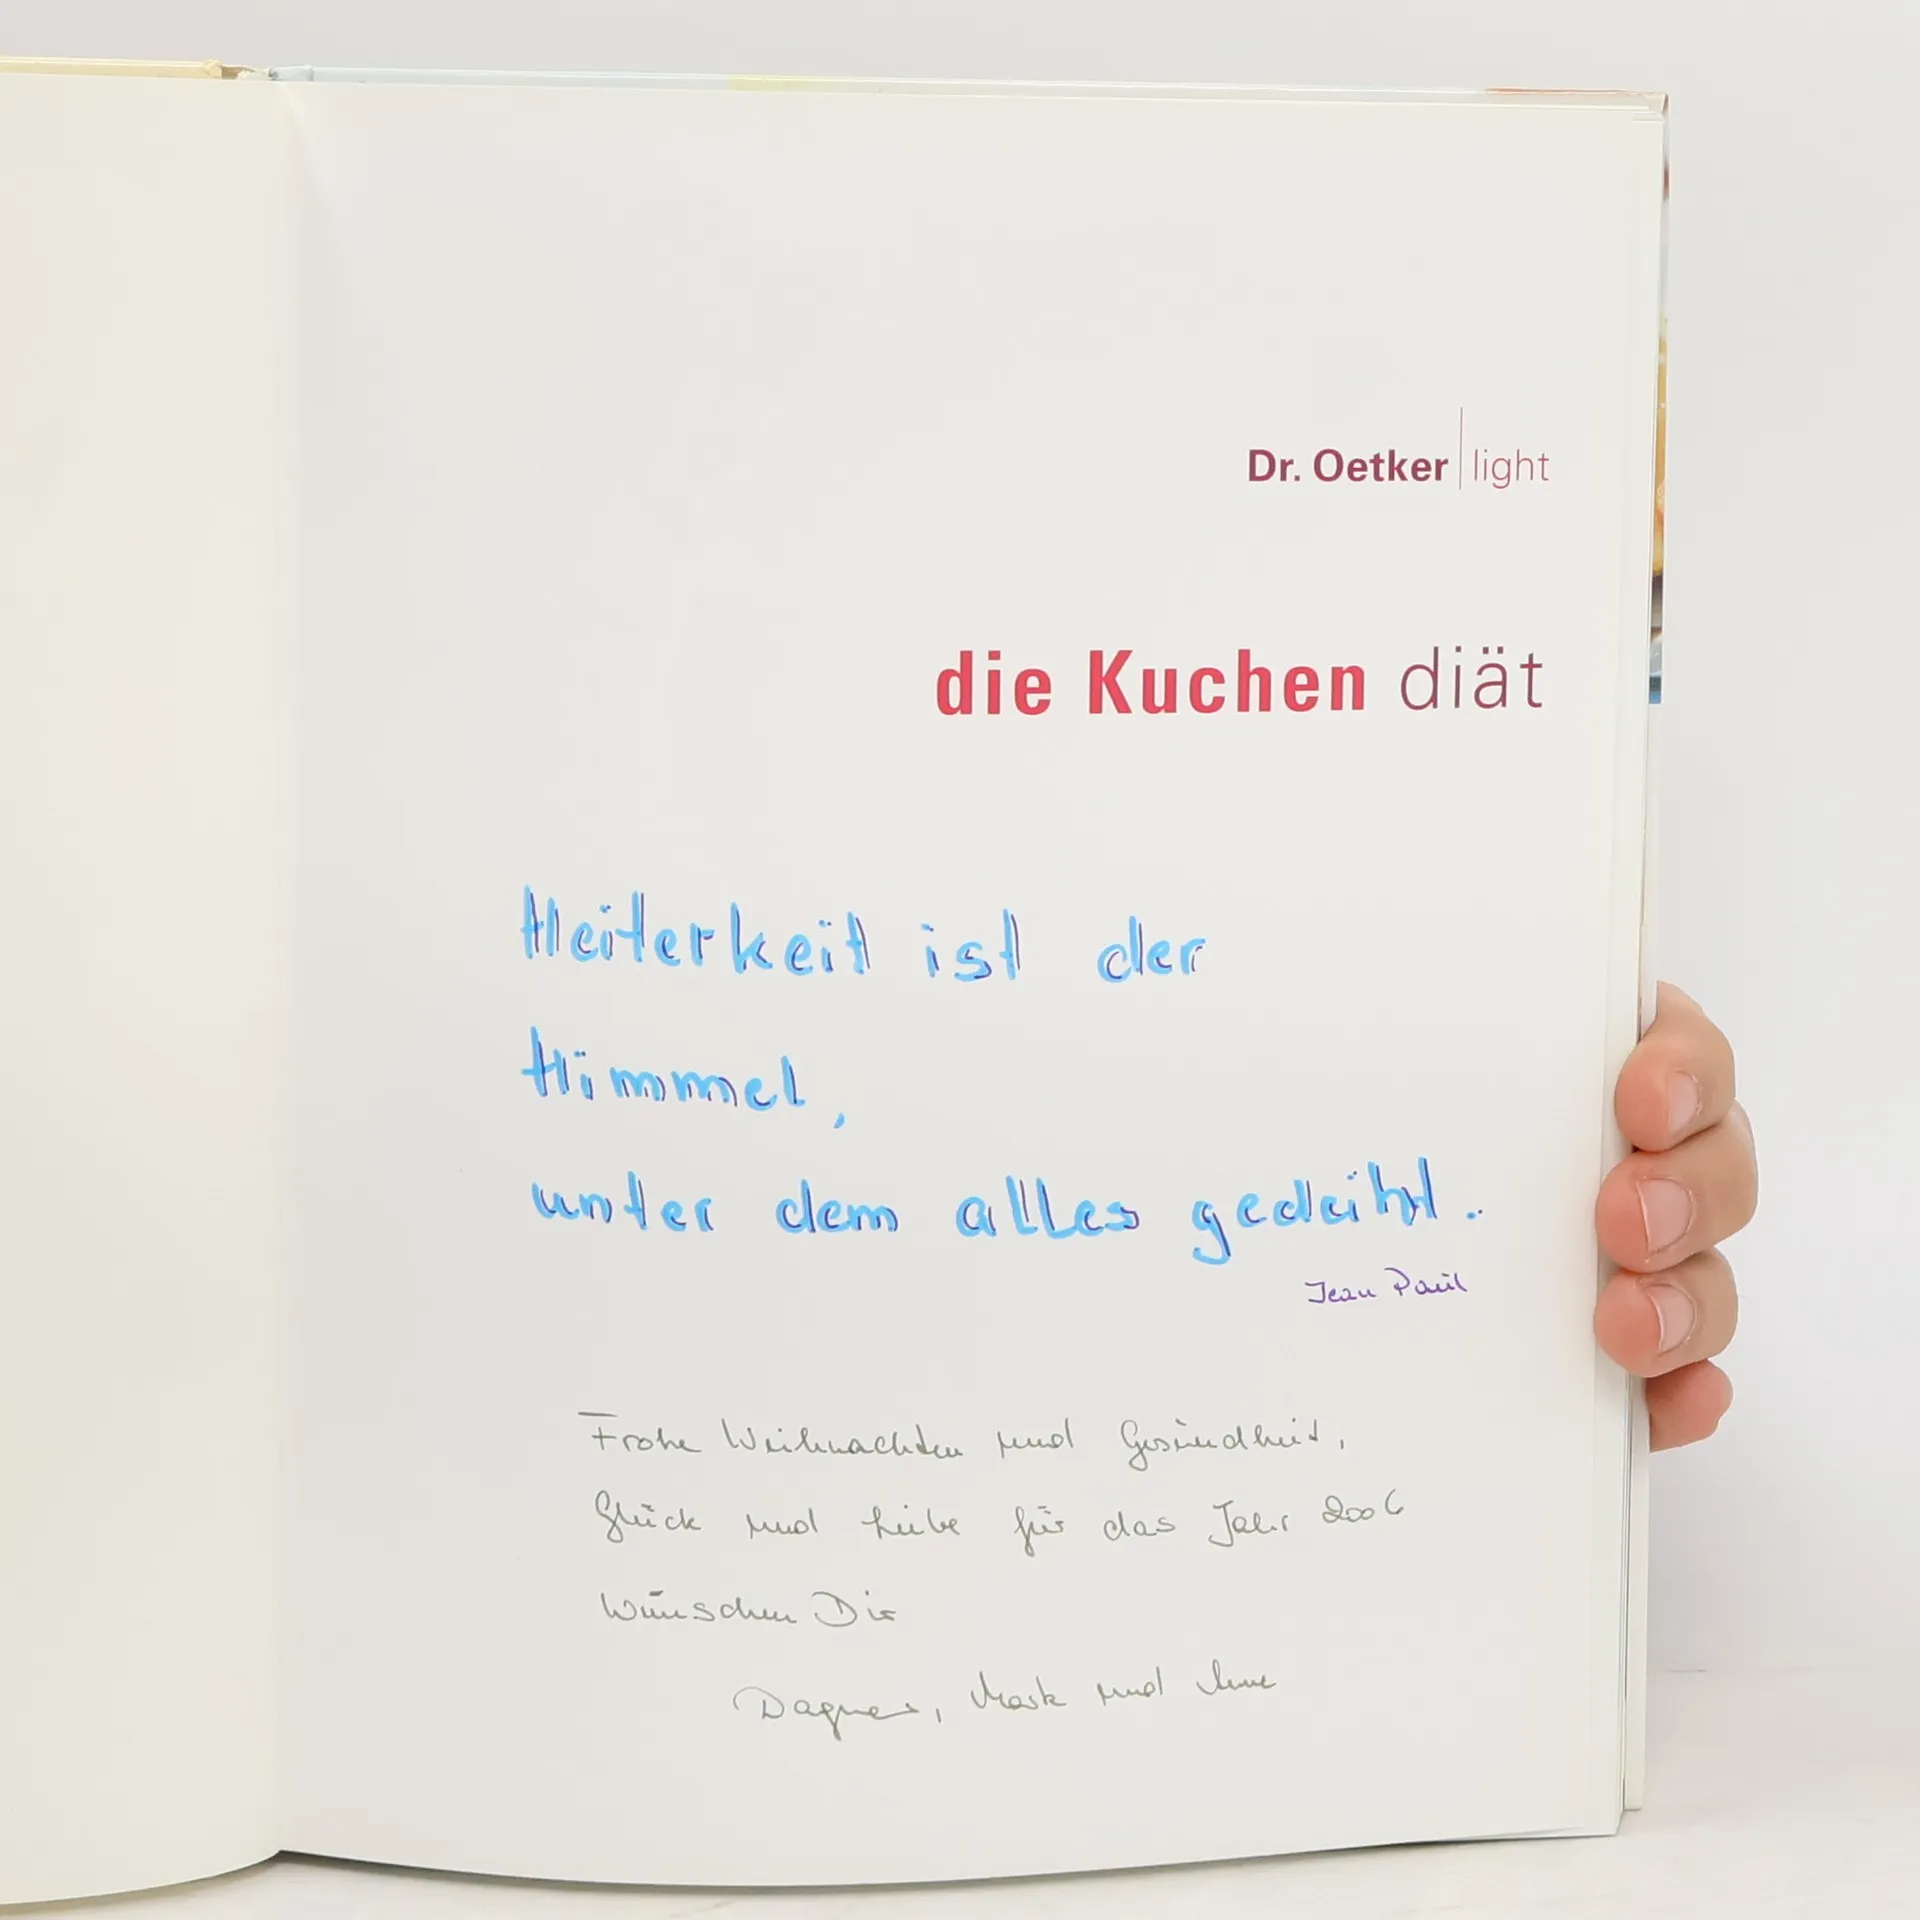 Dr. Oetker light
die Kuchen diät
Heiterkeit ist der
Himmel,
unter dem alles gedeiht.
Jean Paul
Frohe Weihnachten und Gesundheit,
Glück und Liebe für das Jahr 2006
Wünschen Dir
Dagmar, Mark und